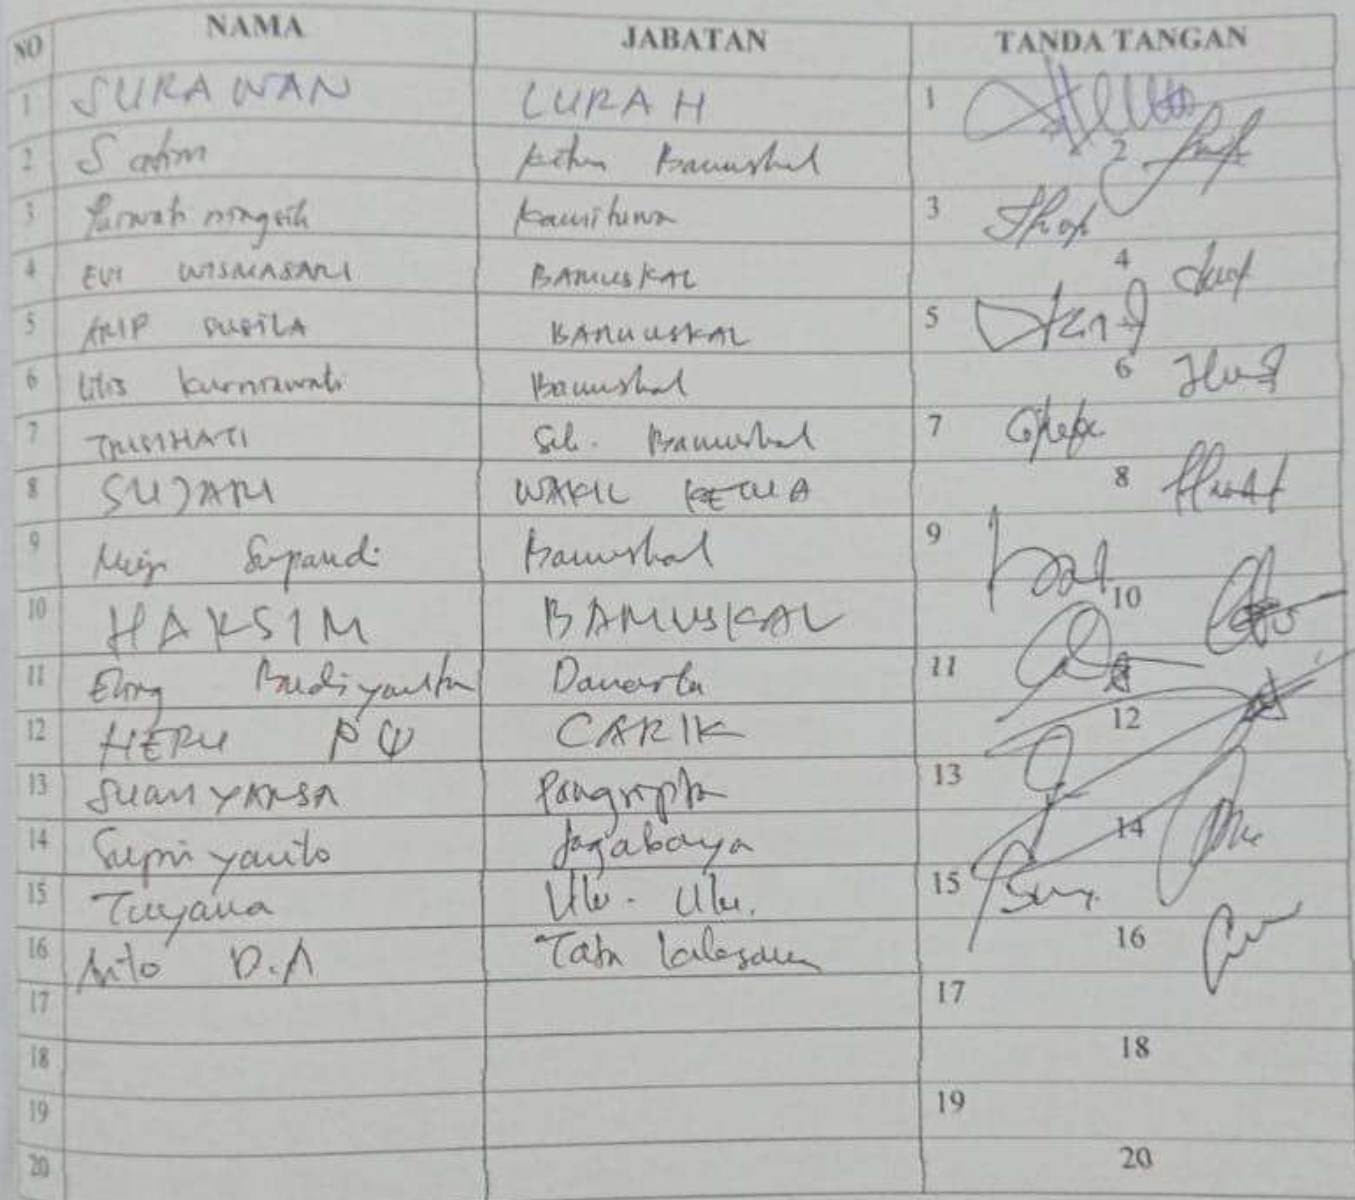 NO NAMA JABATAN TANDA TANGAN
1 SURAWAN LURAH 1
2 Satim Ketua Bamuskal 2
3 Purwati ningsih Kamituwa 3
4 EVI WISMASARI BAMUSKAL 4
5 ARIP SUSILA BAMUUSKAL 5
6 Litis kurniawati Bamuskal 6
7 TRISIHATI Sek. Bamuskal 7
8 SUJARI WAKIL KETUA 8
9 Supardi Bamuskal 9
10 HAKSIM BAMUSKAL 10
11 Eling Budiyanta Danarta 11
12 HERU CARIK 12
13 Pangripta 13
14 Supriyanto Jagabaya 14
15 Tuyana Ulu. Ulu. 15
16 Anto D.A Tata laksana 16
17 17
18 18
19 19
20 20